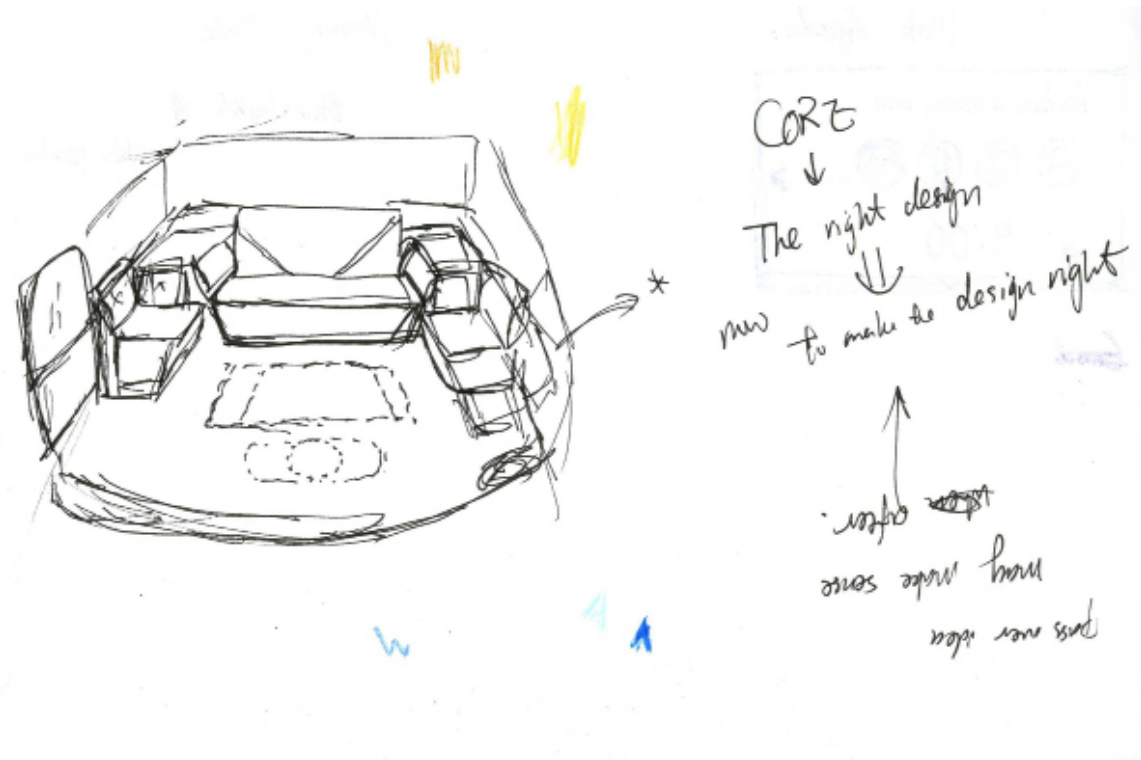 CORE
The right design
to make the design right
pass over idea
may make sense
after.